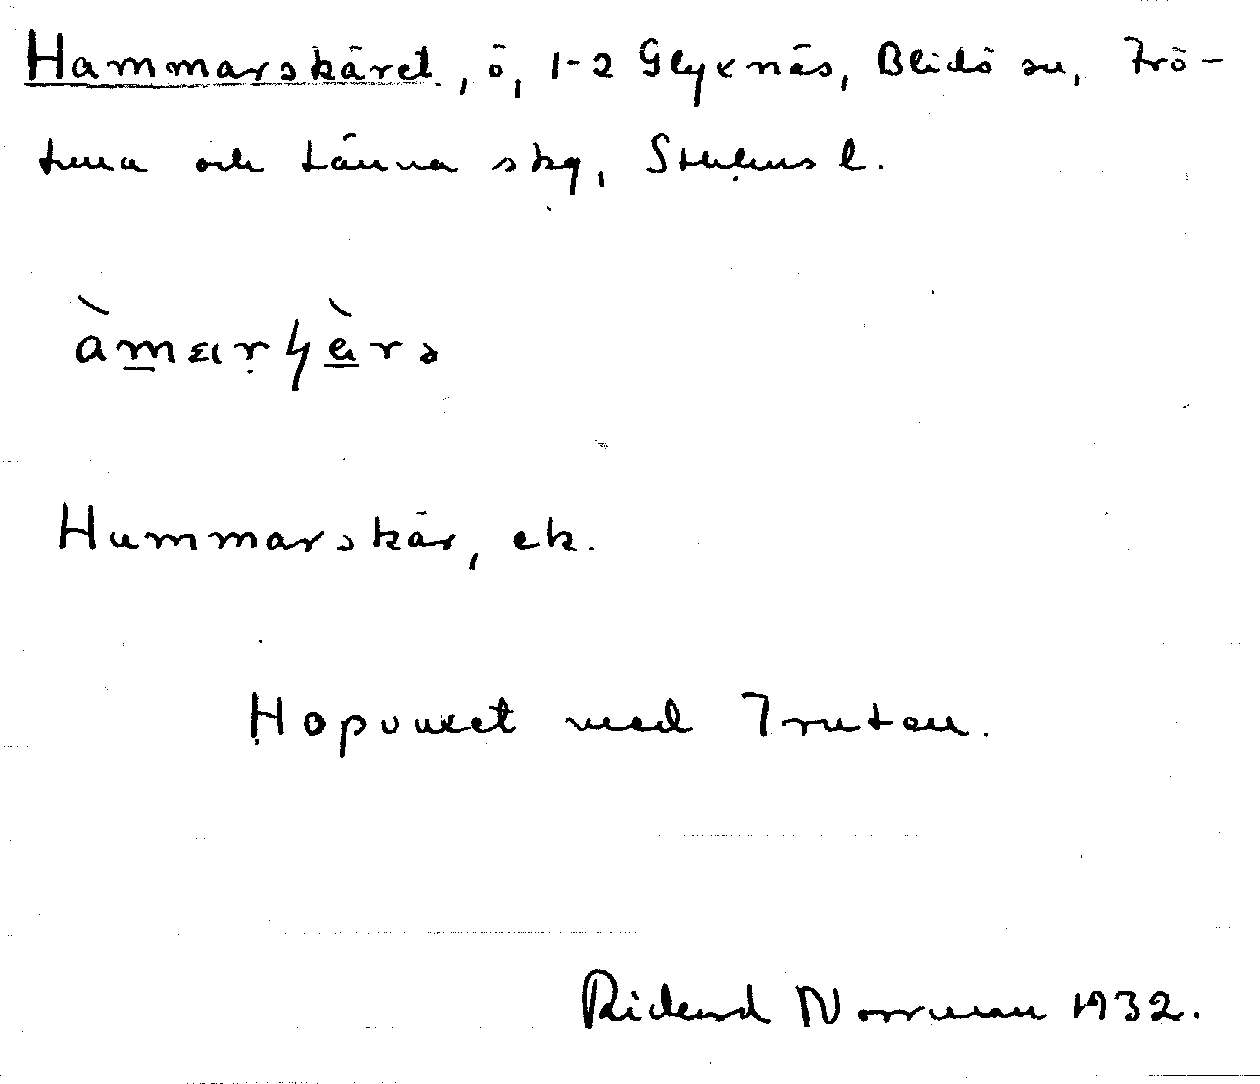 Hammarskäret, ö, 1-2 Glyxnäs, Blidö sn, Frö-
tuna och Länna skg, Sthlms l.
àmarʂæ̀rə
Hammarskär, ek.
Hopvuxet med Truten.
Rickard Norrman 1932.